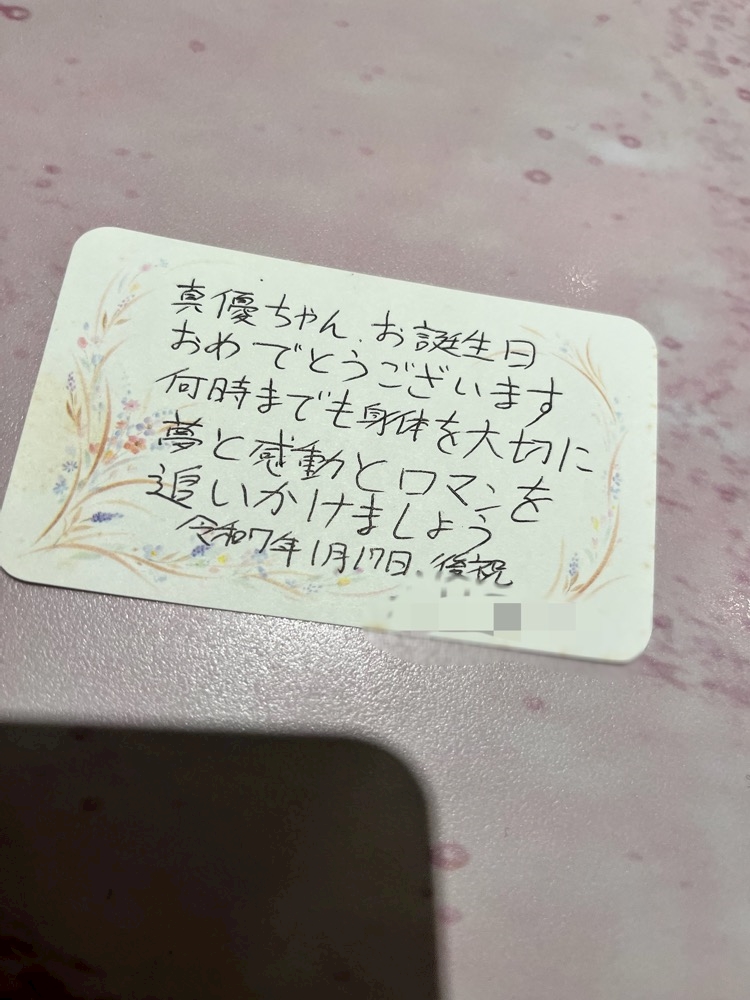 真優ちゃん、お誕生日
おめでとうございます
何時までも身体を大切に
夢と感動とロマンを
追いかけましょう
令和7年1月17日 後祝